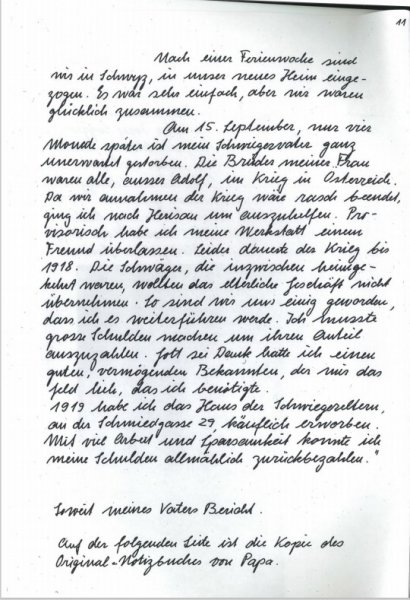 11
Nach einer Ferienwoche sind
wir in Schwyz, in unser neues Heim einge-
zogen. Es war sehr einfach, aber wir waren
glücklich zusammen.
Am 15. September, nur vier
Monate später ist mein Schwiegervater ganz
unerwartet gestorben. Die Brüder meiner Frau
waren alle, ausser Adolf, im Krieg in Österreich.
Da wir annahmen der Krieg wäre rasch beendet,
ging ich nach Herisau um auszuhelfen. Pro-
visorisch habe ich meine Werkstatt einem
Freund überlassen. Leider dauerte der Krieg bis
1918. Die Schwäger, die inzwischen heimge-
kehrt waren, wollten das elterliche Geschäft nicht
übernehmen. So sind wir uns einig geworden,
dass ich es weiterführen werde. Ich musste
grosse Schulden machen um ihren Anteil
auszuzahlen. Gott sei Dank hatte ich einen
guten, vermögenden Bekannten, der mir das
Geld lieh, das ich benötigte.
1919 habe ich das Haus der Schwiegereltern,
an der Schmiedgasse 29, käuflich erworben.
Mit viel Arbeit und Sparsamkeit konnte ich
meine Schulden allmählich zurückbezahlen."
Soweit meines Vaters Bericht.
Auf der folgenden Seite ist die Kopie des
Original-Notizbuches von Papa.